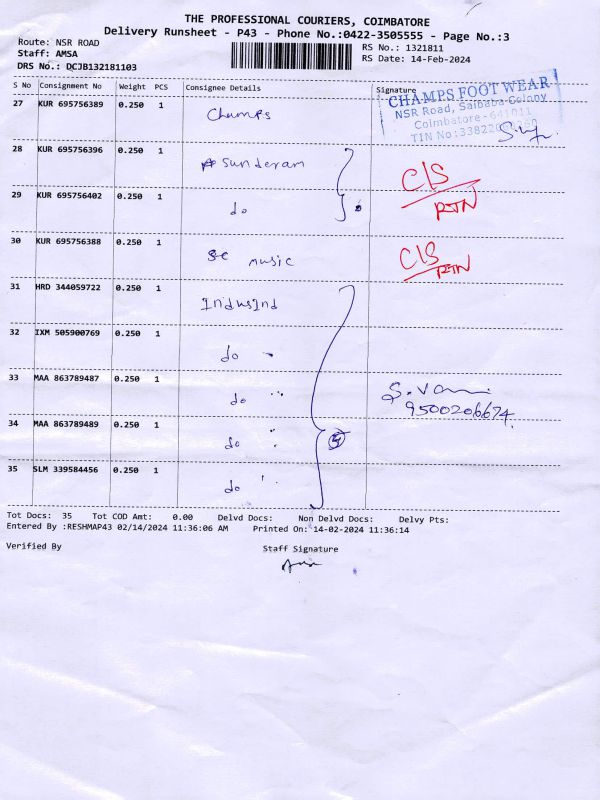 THE PROFESSIONAL COURIERS, COIMBATORE
Delivery Runsheet - P43 - Phone No.:0422-3505555 - Page No.:3
Route: NSR ROAD
RS No.: 1321811
Staff: AMSA
RS Date: 14-Feb-2024
DRS No.: DCJB132181103
S No Consignment No Weight PCS Consignee Details Signature
CHAMPS FOOT WEAR
NSR Road, Saibaba Colony
Coimbatore - 641011
TIN No:33822
27 KUR 695756389 0.250 1 Champs
28 KUR 695756396 0.250 1 Sunderam C/S RTN
29 KUR 695756402 0.250 1 do
30 KUR 695756388 0.250 1 music C/S RTN
31 HRD 344059722 0.250 1 IndusInd
32 IXM 505900769 0.250 1 do
33 MAA 863789487 0.250 1 do 9500206674
34 MAA 863789489 0.250 1 do 5
35 SLM 339584456 0.250 1 do
Tot Docs: 35 Tot COD Amt: 0.00 Delvd Docs: Non Delvd Docs: Delvy Pts:
Entered By :RESHMAP43 02/14/2024 11:36:06 AM Printed On: 14-02-2024 11:36:14
Verified By Staff Signature